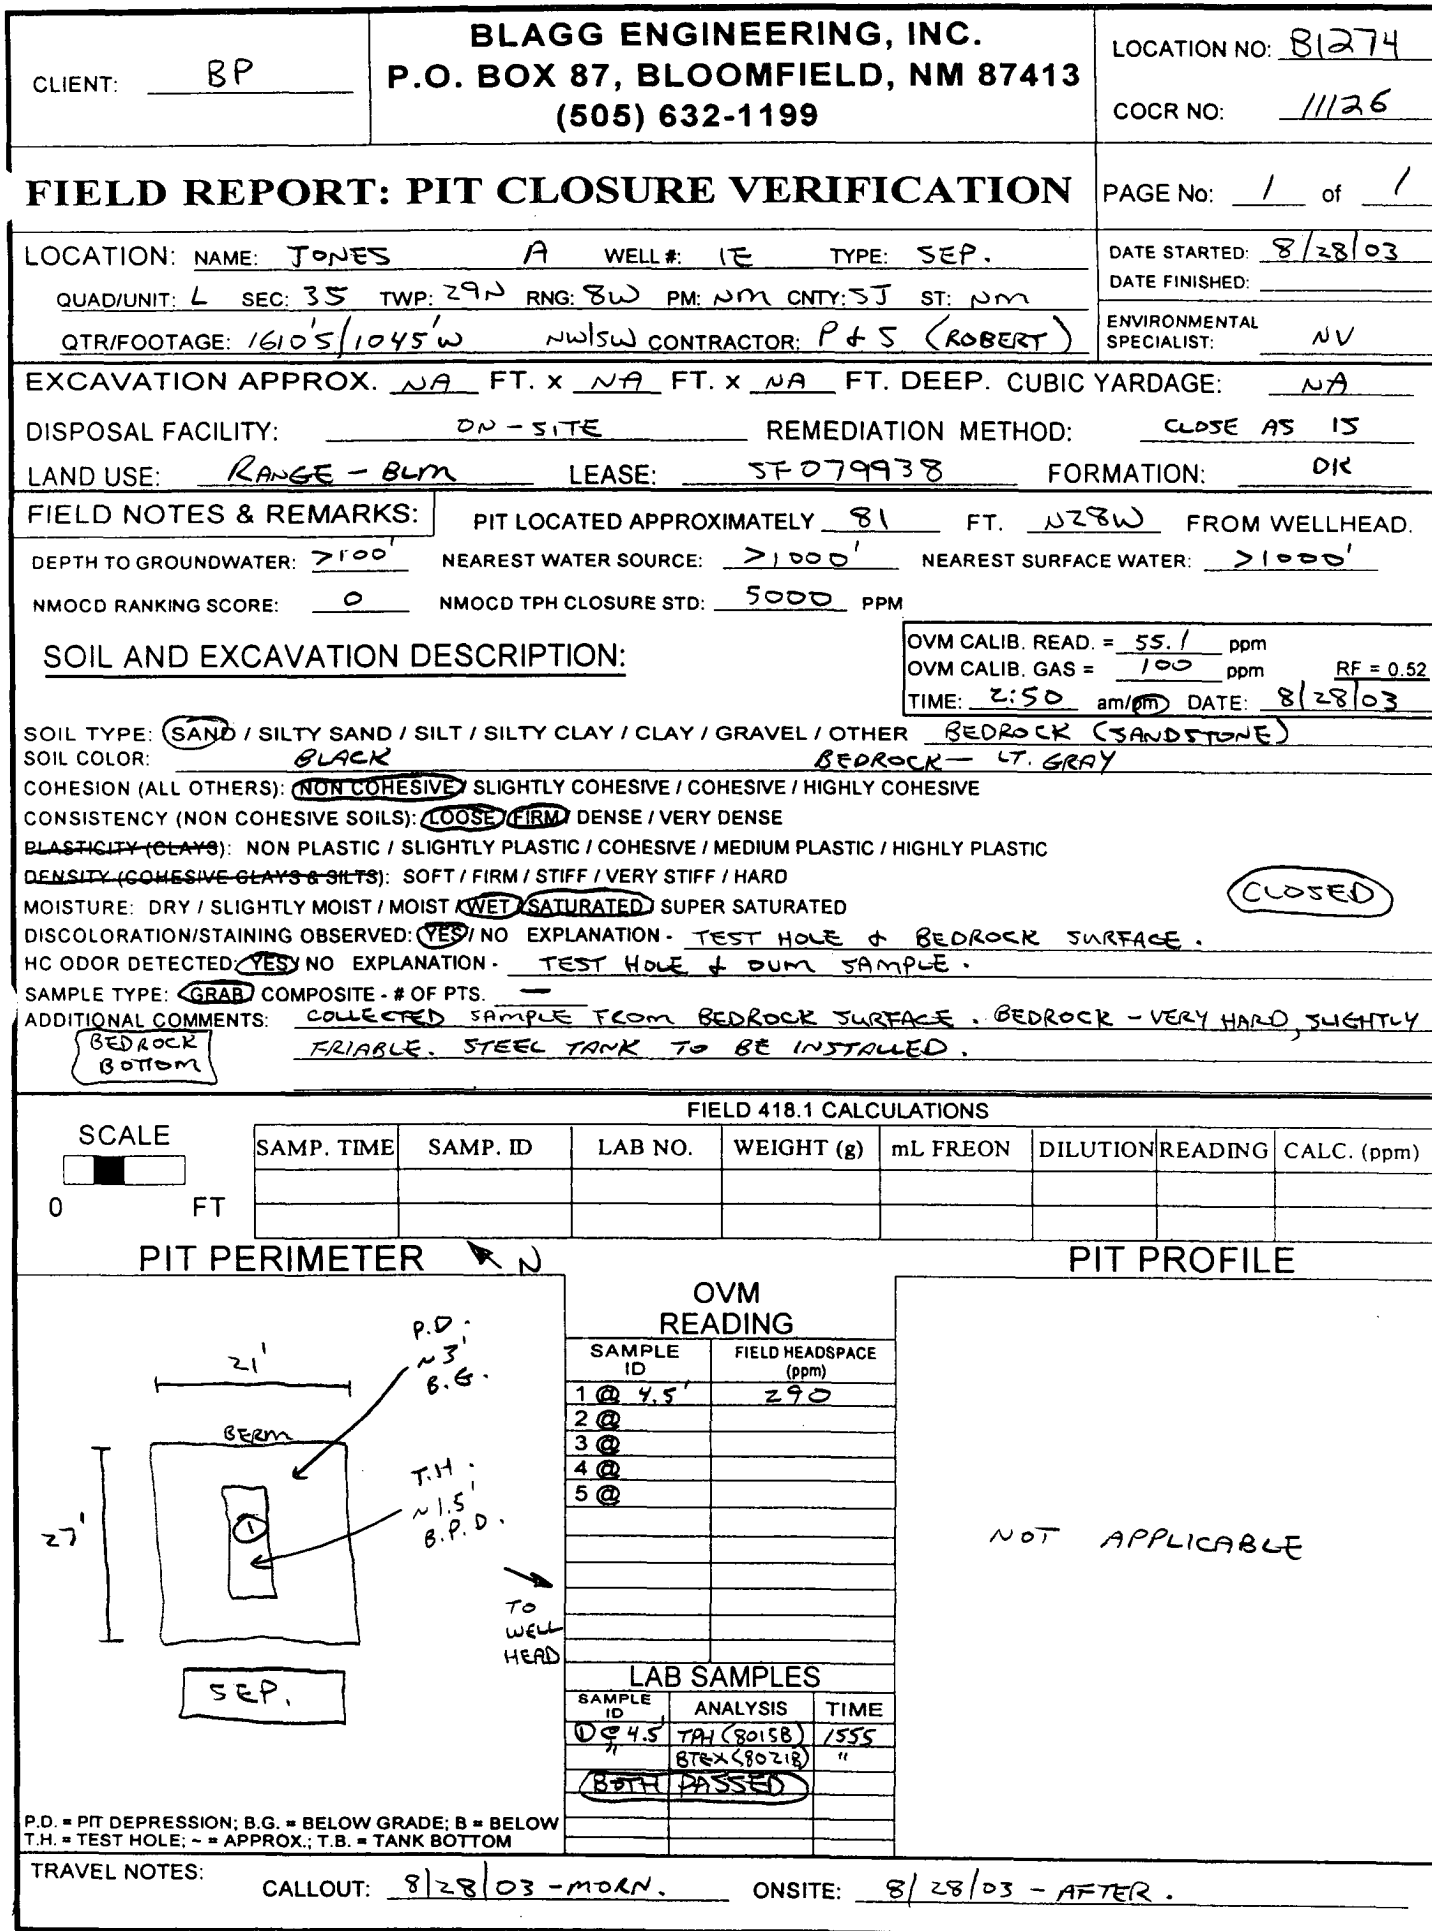 BLAGG ENGINEERING, INC.
P.O. BOX 87, BLOOMFIELD, NM 87413
(505) 632-1199
CLIENT: BP
LOCATION NO: B1274
COCR NO: 11126
FIELD REPORT: PIT CLOSURE VERIFICATION
PAGE No: 1 of 1
LOCATION: NAME: JONES A WELL #: 1E TYPE: SEP.
DATE STARTED: 8/28/03
DATE FINISHED:
QUAD/UNIT: L SEC: 35 TWP: 29N RNG: 8W PM: NM CNTY: SJ ST: NM
QTR/FOOTAGE: 1610'S/1045'W NW/SW CONTRACTOR: P & S (ROBERT)
ENVIRONMENTAL SPECIALIST: NV
EXCAVATION APPROX. NA FT. x NA FT. x NA FT. DEEP. CUBIC YARDAGE: NA
DISPOSAL FACILITY: ON-SITE REMEDIATION METHOD: CLOSE AS IS
LAND USE: RANGE - BLM LEASE: SF079938 FORMATION: DK
FIELD NOTES & REMARKS: PIT LOCATED APPROXIMATELY 81 FT. N28W FROM WELLHEAD.
DEPTH TO GROUNDWATER: >100' NEAREST WATER SOURCE: >1000' NEAREST SURFACE WATER: >1000'
NMOCD RANKING SCORE: 0 NMOCD TPH CLOSURE STD: 5000 PPM
SOIL AND EXCAVATION DESCRIPTION:
OVM CALIB. READ. = 55.1 ppm
OVM CALIB. GAS = 100 ppm RF = 0.52
TIME: 2:50 am/pm DATE: 8/28/03
SOIL TYPE: SAND / SILTY SAND / SILT / SILTY CLAY / CLAY / GRAVEL / OTHER BEDROCK (SANDSTONE)
SOIL COLOR: BLACK BEDROCK - LT. GRAY
COHESION (ALL OTHERS): NON COHESIVE / SLIGHTLY COHESIVE / COHESIVE / HIGHLY COHESIVE
CONSISTENCY (NON COHESIVE SOILS): LOOSE / FIRM / DENSE / VERY DENSE
PLASTICITY (CLAYS): NON PLASTIC / SLIGHTLY PLASTIC / COHESIVE / MEDIUM PLASTIC / HIGHLY PLASTIC
DENSITY (COHESIVE CLAYS & SILTS): SOFT / FIRM / STIFF / VERY STIFF / HARD
CLOSED
MOISTURE: DRY / SLIGHTLY MOIST / MOIST / WET / SATURATED / SUPER SATURATED
DISCOLORATION/STAINING OBSERVED: YES / NO EXPLANATION - TEST HOLE & BEDROCK SURFACE.
HC ODOR DETECTED: YES / NO EXPLANATION - TEST HOLE & OVM SAMPLE.
SAMPLE TYPE: GRAB / COMPOSITE - # OF PTS. —
ADDITIONAL COMMENTS: COLLECTED SAMPLE FROM BEDROCK SURFACE. BEDROCK - VERY HARD, SLIGHTLY
FRIABLE. STEEL TANK TO BE INSTALLED.
BEDROCK
BOTTOM
FIELD 418.1 CALCULATIONS
SCALE
0 FT
SAMP. TIME SAMP. ID LAB NO. WEIGHT (g) mL FREON DILUTION READING CALC. (ppm)
PIT PERIMETER N
PIT PROFILE
21'
P.D.
~3'
B.G.
BERM
T.H.
~1.5'
B.P.D.
1
27'
TO
WELL
HEAD
SEP.
OVM
READING
SAMPLE ID FIELD HEADSPACE (ppm)
1 @ 4.5' 290
2 @
3 @
4 @
5 @
NOT APPLICABLE
LAB SAMPLES
SAMPLE ID ANALYSIS TIME
1 @ 4.5' TPH (8015B) 1555
" BTEX (8021B) "
BOTH PASSED
P.D. = PIT DEPRESSION; B.G. = BELOW GRADE; B = BELOW
T.H. = TEST HOLE; ~ = APPROX.; T.B. = TANK BOTTOM
TRAVEL NOTES: CALLOUT: 8/28/03 - MORN. ONSITE: 8/28/03 - AFTER.